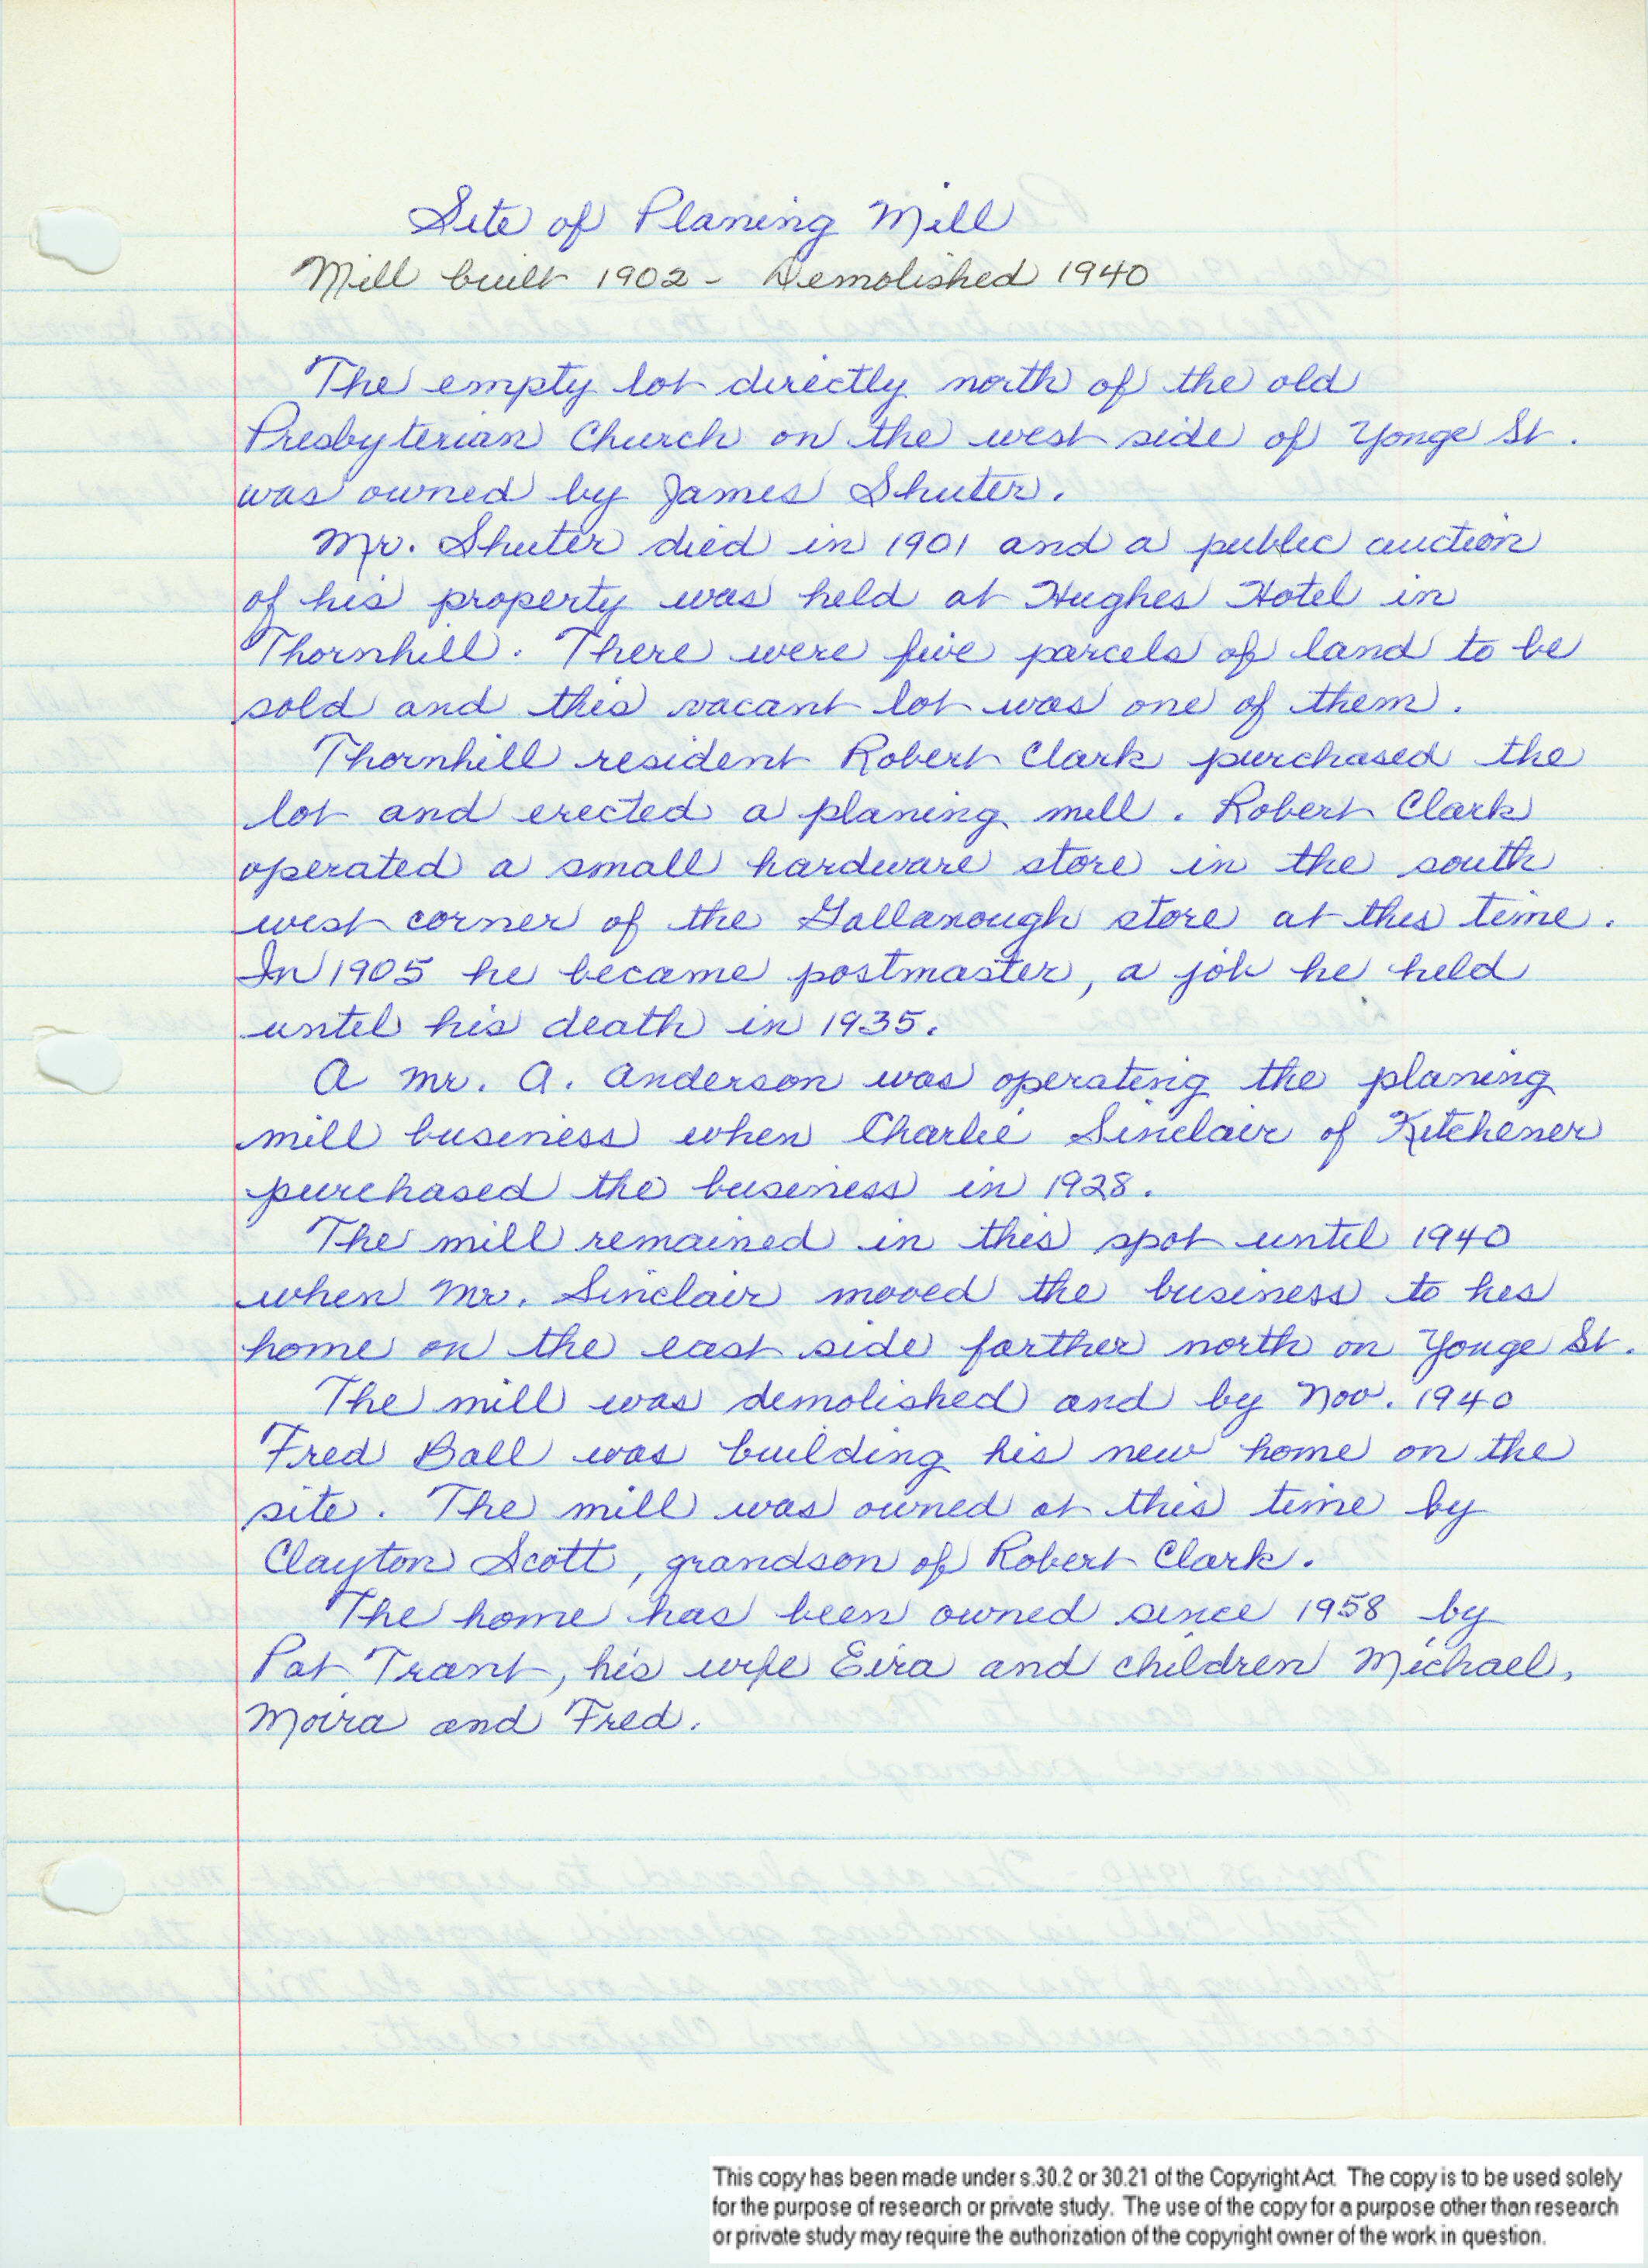 Site of Planing Mill
Mill built 1902 - Demolished 1940
The empty lot directly north of the old
Presbyterian Church on the west side of Yonge St.
was owned by James Shuter.
Mr. Shuter died in 1901 and a public auction
of his property was held at Hughes Hotel in
Thornhill. There were five parcels of land to be
sold and this vacant lot was one of them.
Thornhill resident Robert Clark purchased the
lot and erected a planing mill. Robert Clark
operated a small hardware store in the south
west corner of the Gallanough store at this time.
In 1905 he became postmaster, a job he held
until his death in 1935.
A Mr. A. Anderson was operating the planing
mill business when Charlie Sinclair of Kitchener
purchased the business in 1928.
The mill remained in this spot until 1940
when Mr. Sinclair moved the business to his
home on the east side farther north on Yonge St.
The mill was demolished and by Nov. 1940
Fred Ball was building his new home on the
site. The mill was owned at this time by
Clayton Scott, grandson of Robert Clark.
The home has been owned since 1958 by
Pat Trant, his wife Eira and children Michael,
Moira and Fred.
This copy has been made under s.30.2 or 30.21 of the Copyright Act. The copy is to be used solely
for the purpose of research or private study. The use of the copy for a purpose other than research
or private study may require the authorization of the copyright owner of the work in question.